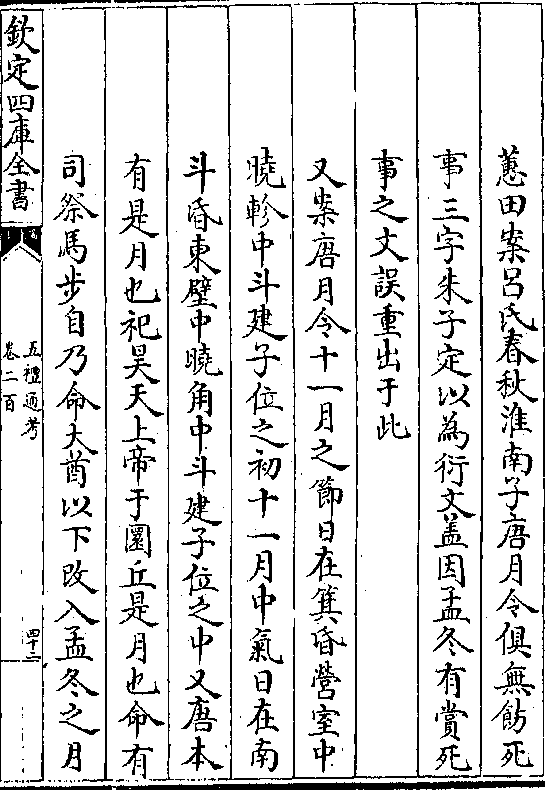 蕙田案吕氏春秋淮南子唐月令俱無飭死
事三字朱子定以為衍文盖因孟冬有賞死
事之文誤重出于此
又案唐月令十一月之節日在箕昏營室中
曉軫中斗建子位之初十一月中氣日在南
斗昏東壁中曉角中斗建子位之中又唐本
有是月也祀昊天上帝于圜丘是月也命有
司祭馬步自乃命大酋以下改入孟冬之月
欽定四庫全書
五禮通考
卷二百
四十二